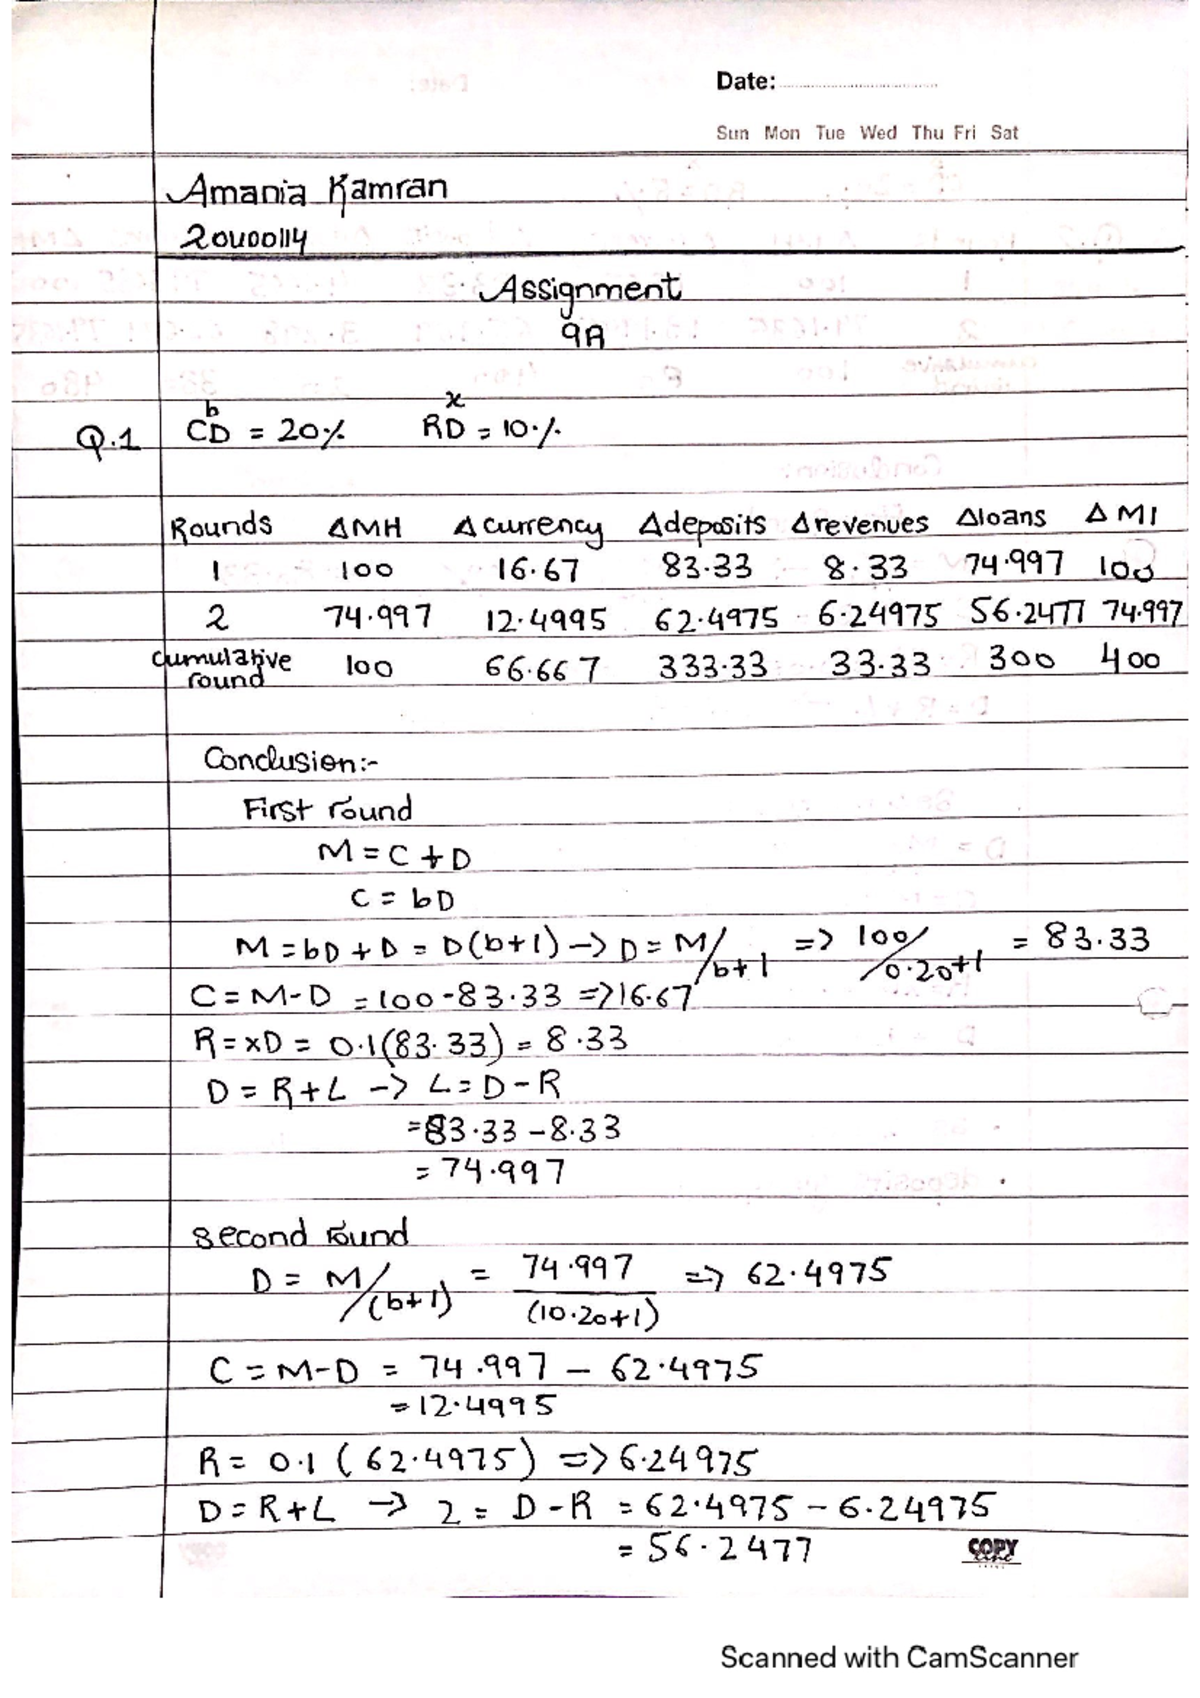 Date:
Sun Mon Tue Wed Thu Fri Sat
Amania Kamran
20U00114
Assignment
9A
b x
Q.1 CD = 20% RD = 10%
Rounds ΔMH Δcurrency Δdeposits Δrevenues Δloans ΔM1
1 100 16.67 83.33 8.33 74.997 100
2 74.997 12.4995 62.4975 6.24975 56.2477 74.997
cumulative round 100 66.667 333.33 33.33 300 400
Conclusion:-
First round
M = C + D
C = bD
M = bD + D = D(b+1) → D = M/b+1 => 100/0.20+1 = 83.33
C = M-D = 100-83.33 => 16.67
R = xD = 0.1(83.33) = 8.33
D = R+L → L = D-R
= 83.33 - 8.33
= 74.997
second round
D = M/(b+1) = 74.997/(10.20+1) => 62.4975
C = M-D = 74.997 - 62.4975
= 12.4995
R = 0.1 (62.4975) => 6.24975
D = R+L → 2 = D-R = 62.4975 - 6.24975
= 56.2477
COPY
Scanned with CamScanner